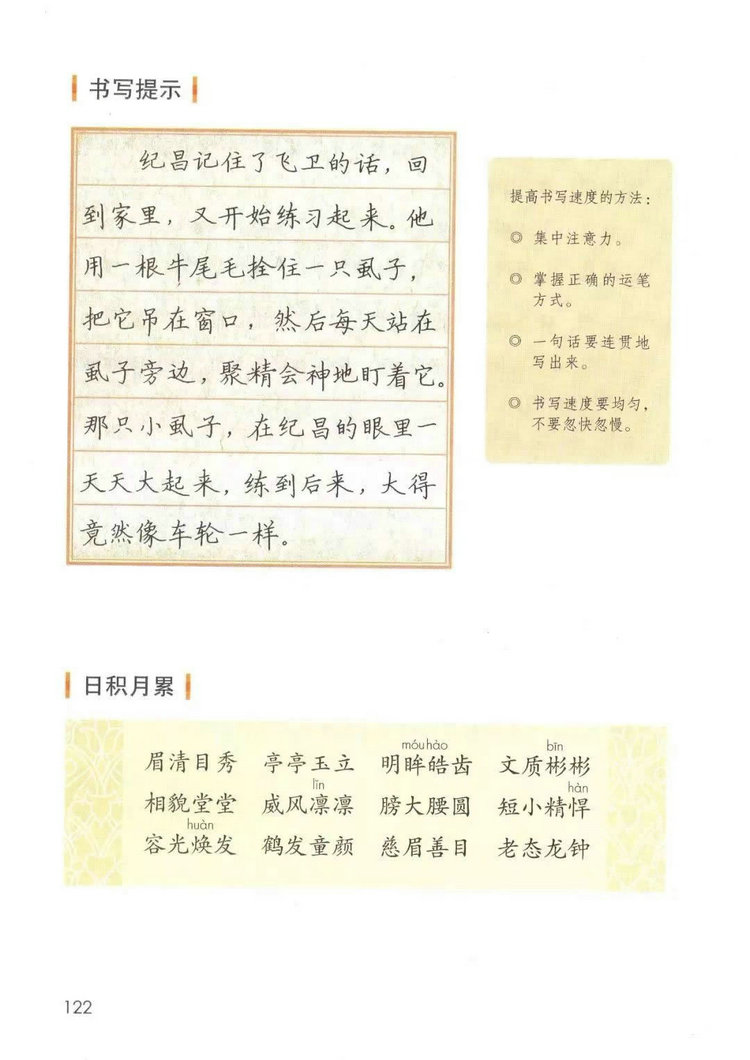 书写提示
纪昌记住了飞卫的话，回
到家里，又开始练习起来。他
用一根牛尾毛拴住一只虱子，
把它吊在窗口，然后每天站在
虱子旁边，聚精会神地盯着它。
那只小虱子，在纪昌的眼里一
天天大起来，练到后来，大得
竟然像车轮一样。
提高书写速度的方法：
◎ 集中注意力。
◎ 掌握正确的运笔
方式。
◎ 一句话要连贯地
写出来。
◎ 书写速度要均匀，
不要忽快忽慢。
日积月累
móu hào bīn
眉清目秀 亭亭玉立 明眸皓齿 文质彬彬
lǐn hàn
相貌堂堂 威风凛凛 膀大腰圆 短小精悍
huàn
容光焕发 鹤发童颜 慈眉善目 老态龙钟
122